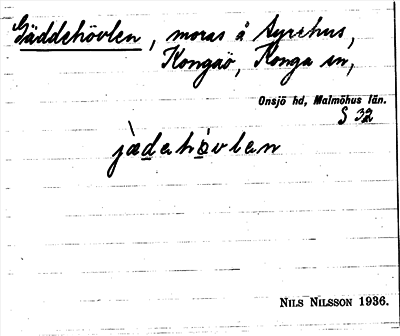 Gäddehövlen, moras å Ayrehus,
Kongaö, Konga sn,
Onsjö hd, Malmöhus län.
S 32
jàdehòvlen
NILS NILSSON 1936.